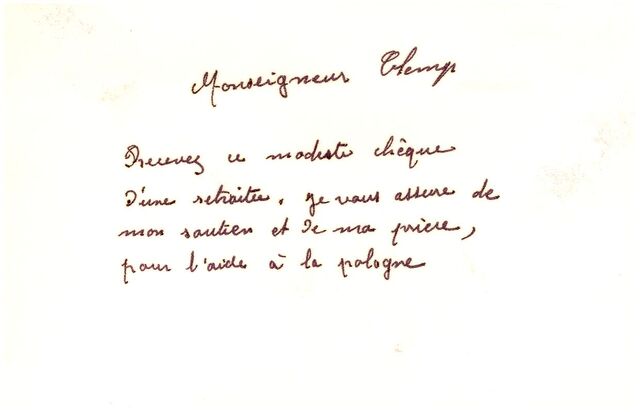 Monseigneur Glemp
Recevez ce modeste chèque
d'une retraitée. Je vous assure de
mon soutien et de ma prière,
pour l'aide à la pologne